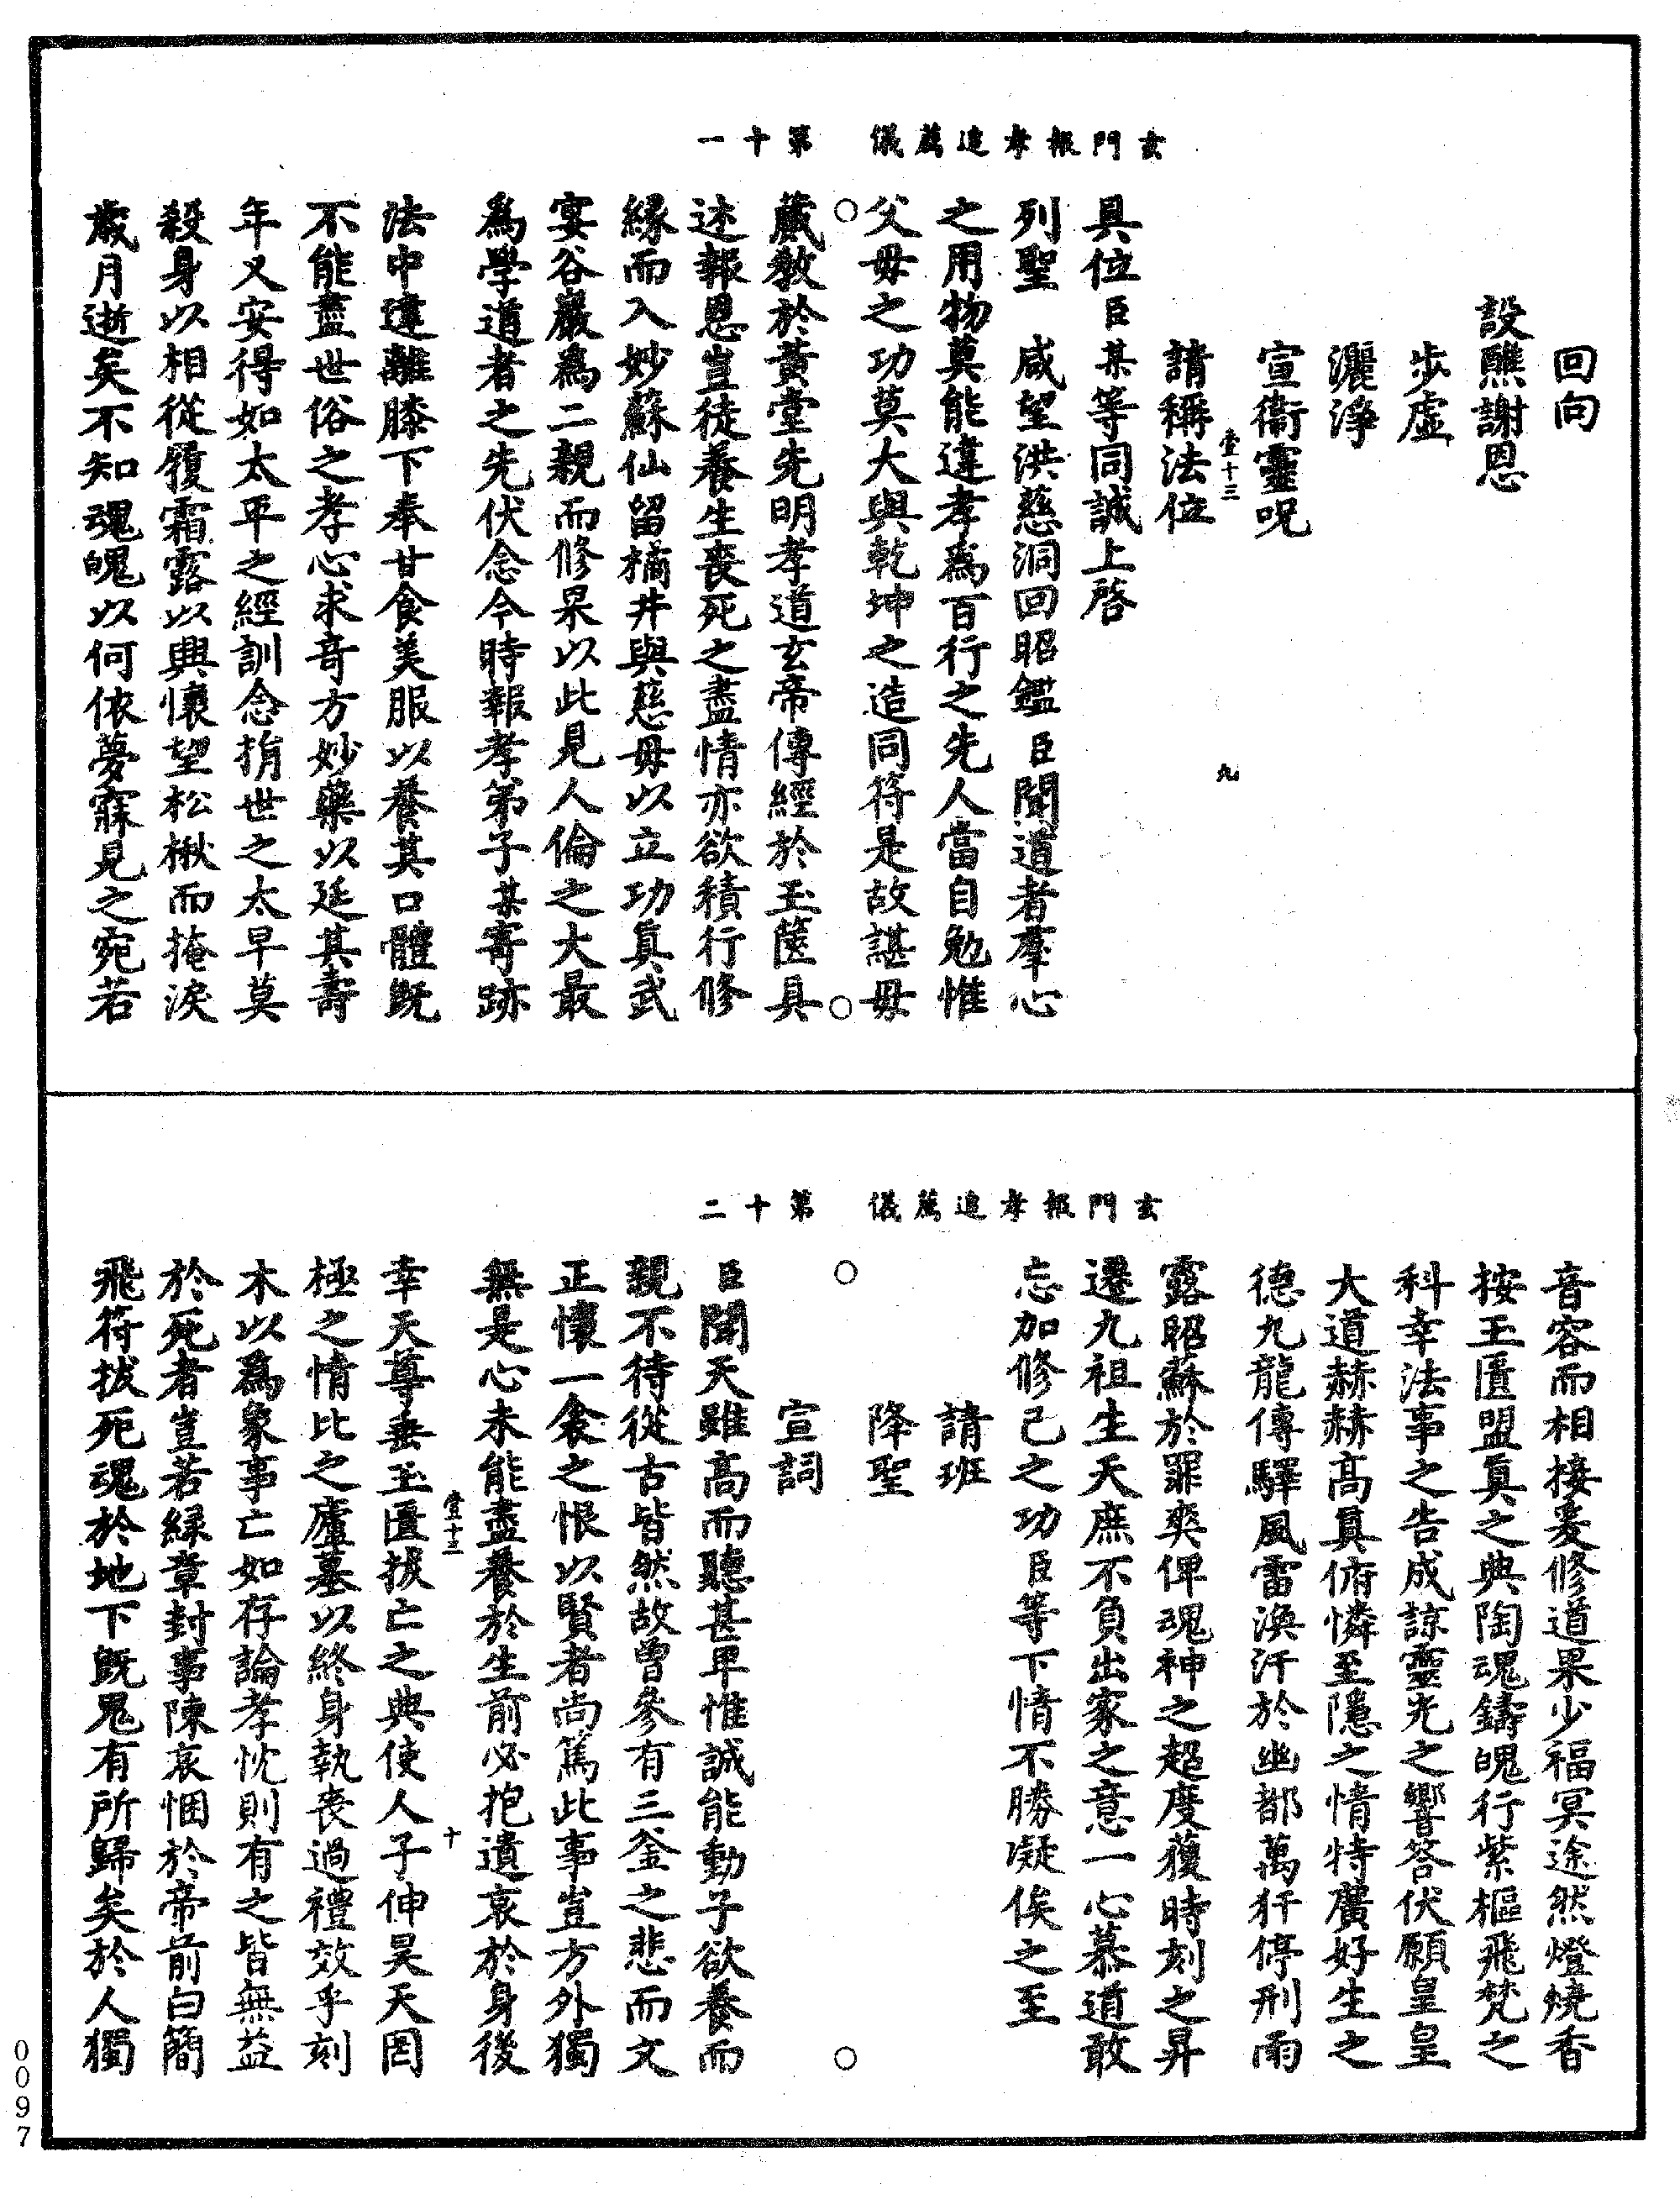 玄門報孝追薦儀　第十一
回向
設醮謝恩
步虛
灑淨
宣衞靈呪
壹十三　九
請稱法位
具位臣某等同誠上啓
列聖　咸望洪慈洞回昭鑑臣聞道者羣心
之用物莫能違孝爲百行之先人當自勉惟
父毋之功莫大與乾坤之造同符是故諶毋
藏教於黃堂先明孝道玄帝傳經於玉篋具
述報恩豈徒養生喪死之盡情亦欲積行修
緣而入妙蘇仙留橘井與慈毋以立功眞武
宴谷巖爲二親而修果以此見人倫之大最
爲學道者之先伏念今時報孝弟子某寄跡
法中違離膝下奉甘食美服以養其口體旣
不能盡世俗之孝心求竒方妙藥以延其壽
年又安得如太平之經訓念捐世之太早莫
殺身以相從履霜露以興懷望松楸而掩淚
歲月逝矣不知魂魄以何依夢寐見之宛若
玄門報孝追薦儀　第十二
音容而相接爰修道果少福冥途然燈燒香
按玉匱盟眞之典陶魂鑄魄行紫樞飛梵之
科幸法事之告成諒靈光之響答伏願皇皇
大道赫赫髙眞俯憐至隱之情特廣好生之
德九龍傳驛風雷渙汗於幽都萬犴停刑雨
露昭蘇於罪爽俾魂神之超度獲時刻之昇
遷九祖生天庶不負出家之意一心慕道敢
忘加修己之功臣等下情不勝凝俟之至
請班
降聖
宣詞
臣聞天雖髙而聽甚卑惟誠能動子欲養而
親不待從古皆然故曾參有三釜之悲而文
正懷一衾之恨以賢者尚篤此事豈方外獨
無是心未能盡養於生前必抱遺哀於身後
壹十三　十
幸天尊垂玉匱拔亡之典使人子伸昊天罔
極之情比之廬墓以終身執喪過禮效乎刻
木以爲象事亡如存論孝忱則有之皆無益
於死者豈若緑章封事陳哀悃於帝前白簡
飛符拔死魂於地下旣鬼有所歸矣於人獨
0097